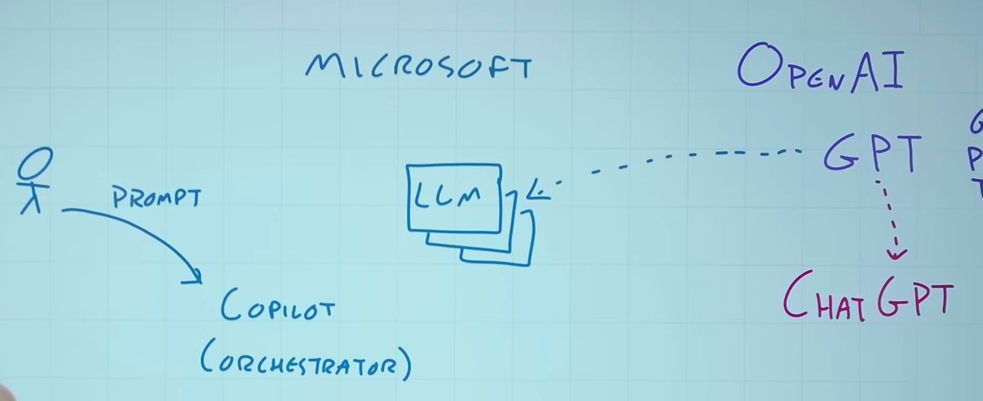 MICROSOFT
OPENAI
GPT
G
P
T
LLM
PROMPT
COPILOT
(ORCHESTRATOR)
CHATGPT